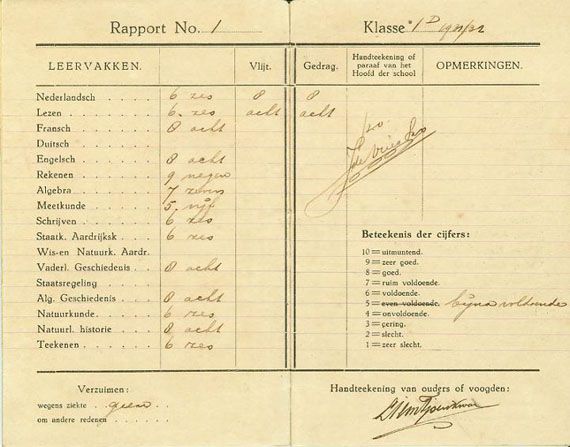 Rapport No. 1 Klasse 1 D 1921/22
LEERVAKKEN. Vlijt. Gedrag. Handteekening of paraaf van het Hoofd der school OPMERKINGEN.
Nederlandsch 6 zes 8 8
Lezen 6. zes acht acht
Fransch 8 acht
Duitsch
Engelsch 8 acht
Rekenen 9 negen
Algebra 7 zeven
Meetkunde 5. vijf
Schrijven 6 zes
Staatk. Aardrijksk. 6 zes
Wis-en Natuurk. Aardr.
Vaderl. Geschiedenis 8 acht
Staatsregeling
Alg. Geschiedenis 8 acht
Natuurkunde 6 zes
Natuurl. historie 8 acht
Teekenen 6 zes
Beteekenis der cijfers:
10 = uitmuntend.
9 = zeer goed.
8 = goed.
7 = ruim voldoende.
6 = voldoende.
5 = even voldoende. bijna voldoende
4 = onvoldoende.
3 = gering.
2 = slecht.
1 = zeer slecht.
Verzuimen:
wegens ziekte geen
om andere redenen
Handteekening van ouders of voogden: